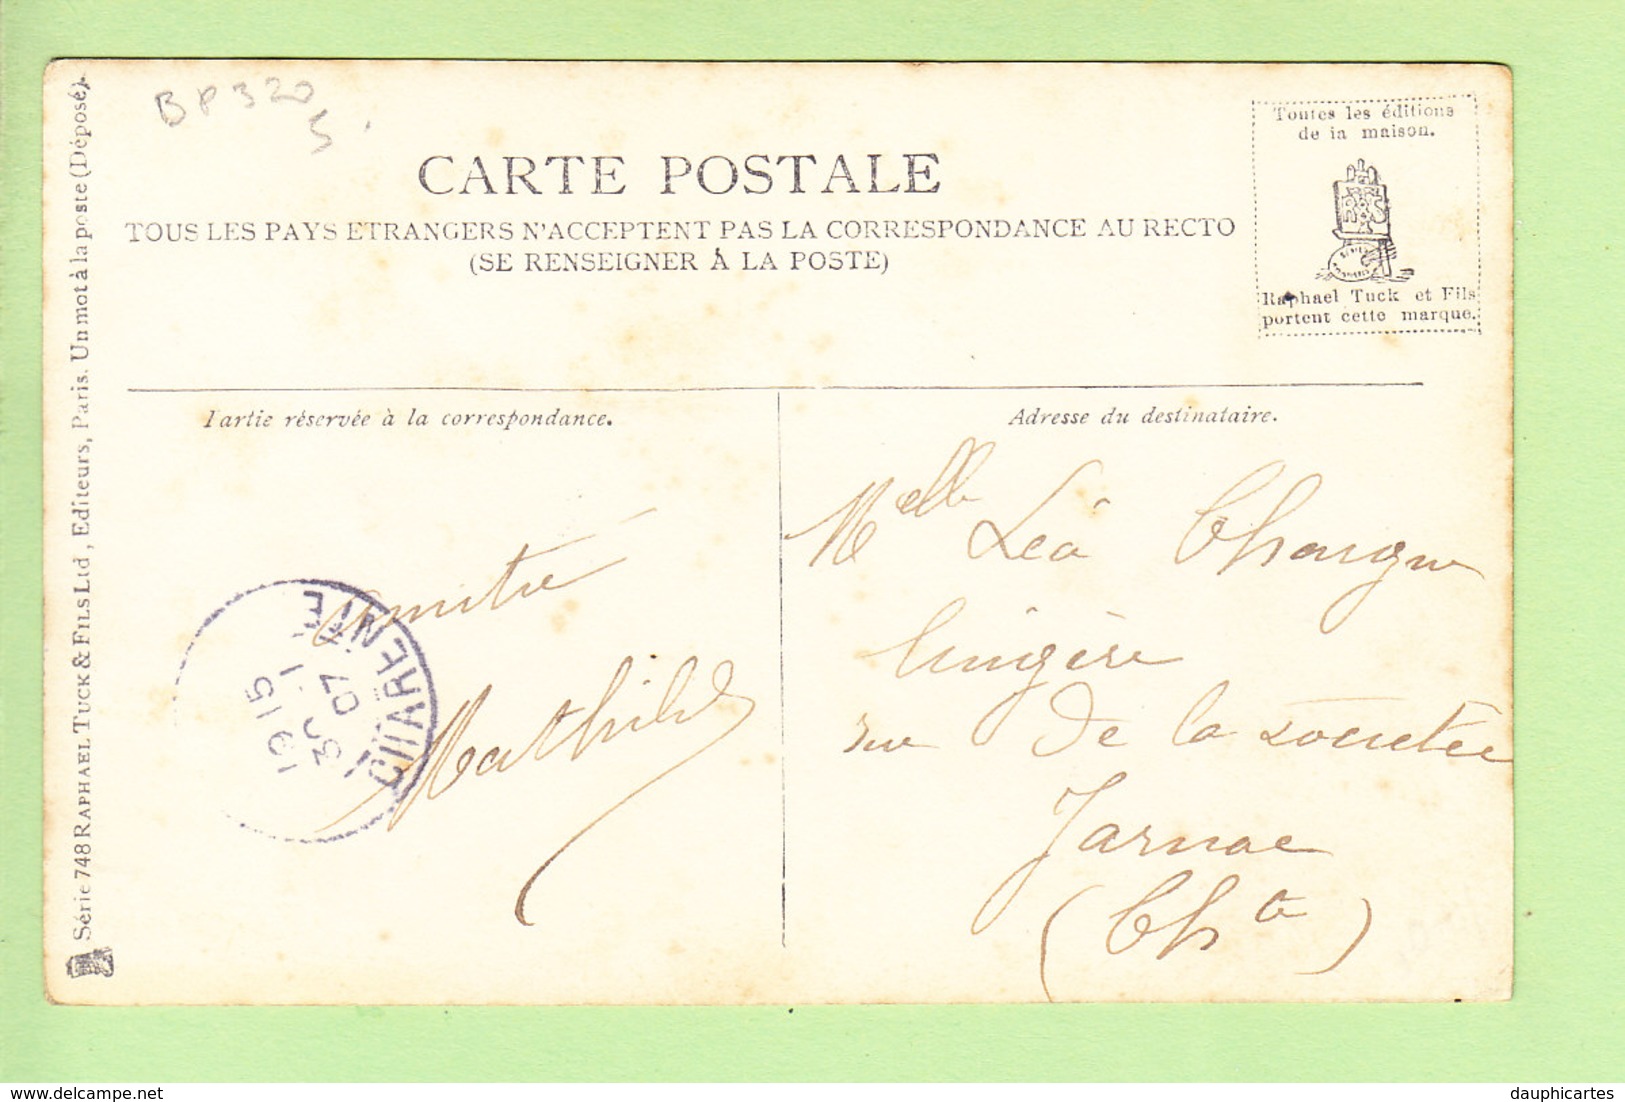 BP320
5
CARTE POSTALE
TOUS LES PAYS ETRANGERS N'ACCEPTENT PAS LA CORRESPONDANCE AU RECTO
(SE RENSEIGNER À LA POSTE)
Toutes les éditions
de la maison.
Raphael Tuck et Fils
portent cette marque.
Série 748 RAPHAEL TUCK & FILS Ltd, Editeurs, Paris. Un mot à la poste (Déposé).
Partie réservée à la correspondance.
amitié
Mathilde
CHARENTE
19 15
07
Adresse du destinataire.
Melle Léa
lingère
rue de la société
Jarnac
(Chte)
© delcampe.net
dauphicartes